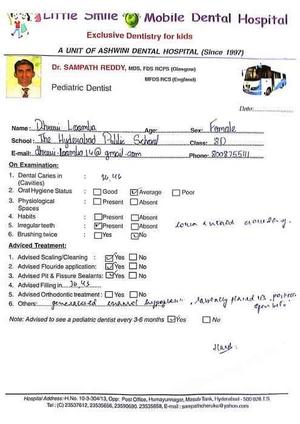 Little Smile Mobile Dental Hospital
Exclusive Dentistry for kids
A UNIT OF ASHWINI DENTAL HOSPITAL (Since 1997)
Dr. SAMPATH REDDY, MDS, FDS RCPS (Glasgow)
MFDS RCS (England)
Pediatric Dentist
Date:
Name: Loomba Age: Sex: Female
School: The Hyderabad Public School Class: 8D
E-mail: Phone:
On Examination:
1. Dental Caries in (Cavities) : 36, 46
2. Oral Hygiene Status : Good Average Poor
3. Physiological Spaces : Present Absent
4. Habits : Present Absent
5. Irregular teeth : Present Absent lower anterior crowding.
6. Brushing twice : Yes No
Adviced Treatment:
1. Advised Scaling/Cleaning : Yes No
2. Advised Flouride application : Yes No
3. Advised Pit & Fissure Sealants: Yes No
4. Advised Filling in
5. Advised Orthodontic treatment : Yes No
6. Others: generalized enamel hypoplasia, placed
open bite.
Note: Advised to see a pediatric dentist every 3-6 months Yes No
Hospital Address: H.No. 10-3-304/13, Opp: Post Office, Humayunnagar, Masab Tank, Hyderabad - 500 028 T.S.
Tel: (C) 23537612, 23535656, 23590690, 23535658, E-mail: sampathcheruku@yahoo.com